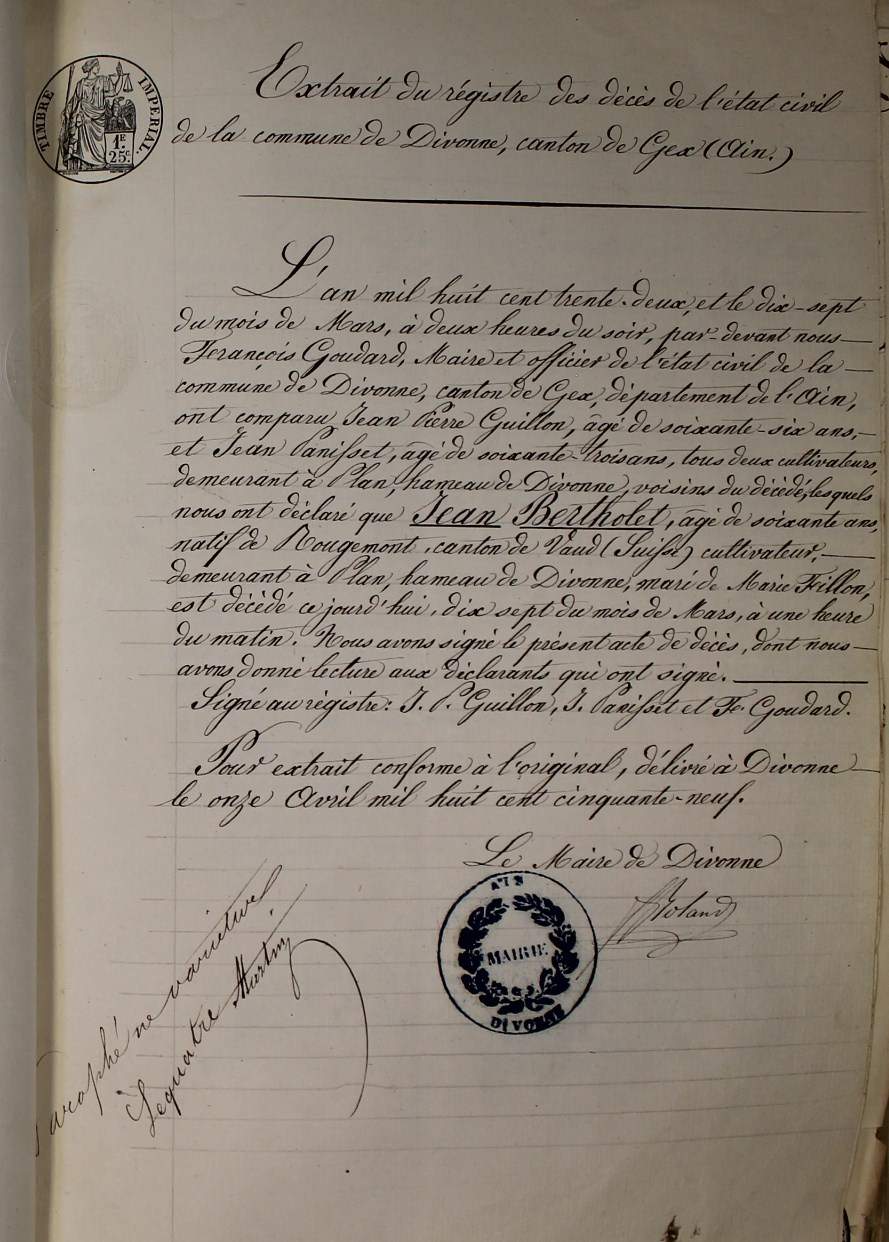 TIMBRE IMPERIAL.
1F.
25c.
Extrait du régistre des décès de l'état civil
de la commune de Divonne, canton de Gex (Ain.)
L'an mil huit cent trente-deux, et le dix-sept
du mois de Mars, à deux heures du soir, par-devant nous
François Goudard, Maire et officier de l'état civil de la
commune de Divonne, canton de Gex, département de l'Ain,
ont comparu Jean Pierre Guillon, âgé de soixante-six ans,
et Jean Panisset, âgé de soixante-trois ans, tous deux cultivateurs,
demeurant à Plan, hameau de Divonne, voisins du décédé, lesquels
nous ont déclaré que Jean Bertholet, âgé de soixante ans,
natif de Rougemont, canton de Vaud (Suisse) cultivateur,
demeurant à Plan, hameau de Divonne, mari de Marie Fillon,
est décédé ce jourd'hui, dix sept du mois de Mars, à une heure
du matin. Nous avons signé le présent acte de décès, dont nous
avons donné lecture aux déclarants qui ont signé.
Signé au régistre: J. P. Guillon, J. Panisset et F. Goudard.
Pour extrait conforme à l'original, délivré à Divonne
le onze Avril mil huit cent cinquante-neuf.
Le Maire de Divonne
Roland
AIN
MAIRIE
DIVONNE
Paraphé ne varietur
Le quatre